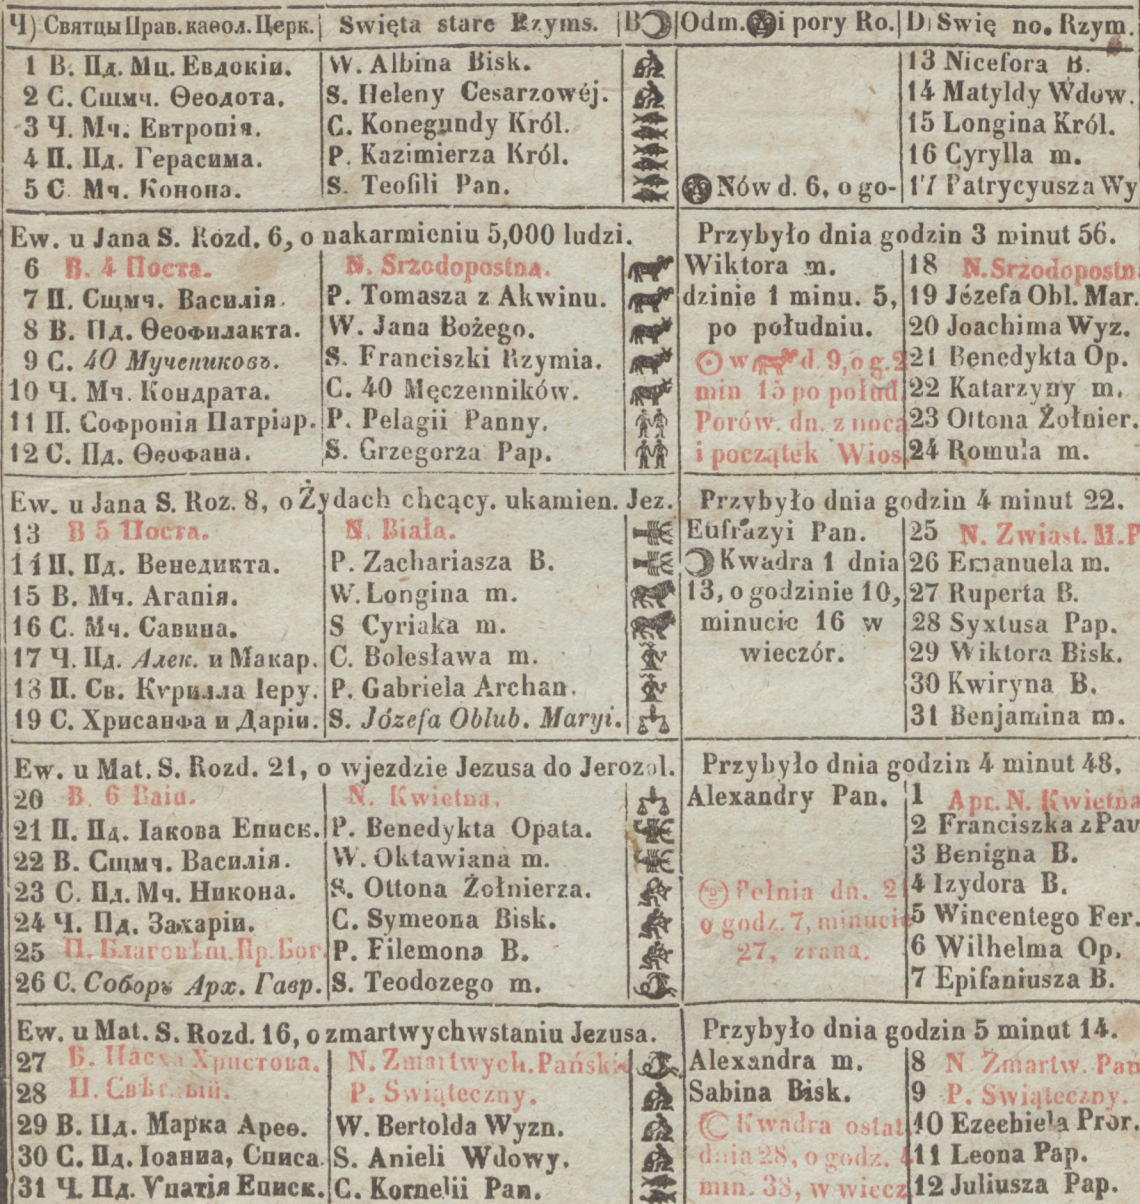 Ч) Святцы Прав. каѳол. Церк. Swięta stare Rzyms. B Odm. i pory Ro. D Swię no. Rzym.
1 В. Пд. Мц. Евдокіи. W. Albina Bisk. 13 Nicefora B.
2 С. Сщмч. Ѳеодота. S. Heleny Cesarzowéj. 14 Matyldy Wdow.
3 Ч. Мч. Евтропія. C. Konegundy Król. 15 Longina Król.
4 П. Пд. Герасима. P. Kazimierza Król. 16 Cyrylla m.
5 С. Мч. Конона. S. Teofili Pan. Nów d. 6, o go- 17 Patrycyusza Wy
Ew. u Jana S. Rozd. 6, o nakarmieniu 5,000 ludzi. Przybyło dnia godzin 3 minut 56.
6 В. 4 Поста. N. Srzodopostna. Wiktora m. 18 N. Srzodopostn
7 П. Сщмч. Василія. P. Tomasza z Akwinu. dzinie 1 minu. 5, 19 Józefa Obl. Mar.
8 В. Пд. Ѳеофилакта. W. Jana Bożego. po południu. 20 Joachima Wyz.
9 С. 40 Мучениковъ. S. Franciszki Rzymia. w d. 9, o g. 2 21 Benedykta Op.
10 Ч. Мч. Кондрата. C. 40 Męczenników. min 15 po połud. 22 Katarzyny m.
11 П. Софронія Патріар. P. Pelagii Panny. Porów. dn. z nocą 23 Ottona Żołnier.
12 С. Пд. Ѳеофана. S. Grzegorza Pap. i początek Wios. 24 Romula m.
Ew. u Jana S. Roz. 8, o Żydach chcący. ukamien. Jez. Przybyło dnia godzin 4 minut 22.
13 В 5 Поста. N. Biała. Eufrazyi Pan. 25 N. Zwiast. M.P
14 П. Пд. Венедикта. P. Zachariasza B. Kwadra 1 dnia 26 Emanuela m.
15 В. Мч. Агапія. W. Longina m. 13, o godzinie 10, 27 Ruperta B.
16 С. Мч. Савина. S Cyriaka m. minucie 16 w 28 Syxtusa Pap.
17 Ч. Пд. Алек. и Макар. C. Bolesława m. wieczór. 29 Wiktora Bisk.
18 П. Св. Кѵрилла Іеру. P. Gabriela Archan. 30 Kwiryna B.
19 С. Хрисанфа и Даріи. S. Józefa Oblub. Maryi. 31 Benjamina m.
Ew. u Mat. S. Rozd. 21, o wjezdzie Jezusa do Jerozol. Przybyło dnia godzin 4 minut 48.
20 В. 6 Ваіи. N. Kwietna. Alexandry Pan. 1 Apr. N. Kwietna
21 П. Пд. Іакова Еписк. P. Benedykta Opata. 2 Franciszka z Pau
22 В. Сщмч. Василія. W. Oktawiana m. 3 Benigna B.
23 С. Пд. Мч. Никона. S. Ottona Żołnierza. Pełnia dn. 21 4 Izydora B.
24 Ч. Пд. Захаріи. C. Symeona Bisk. o godz. 7, minucie 5 Wincentego Fer.
25 П. Благовѣщ. Пр. Бог. P. Filemona B. 27, zrana. 6 Wilhelma Op.
26 С. Соборъ Арх. Гавр. S. Teodozego m. 7 Epifaniusza B.
Ew. u Mat. S. Rozd. 16, o zmartwychwstaniu Jezusa. Przybyło dnia godzin 5 minut 14.
27 В. Пасха Христова. N. Zmartwych. Pańskie Alexandra m. 8 N Zmartw. Pań
28 П. Свѣтлый. P. Swiąteczny. Sabina Bisk. 9 P. Swiąteczny.
29 В. Пд. Марка Ареѳ. W. Bertolda Wyzn. Kwadra ostat 10 Ezechiela Pror.
30 С. Пд. Іоанна, Списа. S. Anieli Wdowy. dnia 28, o godz. 4 11 Leona Pap.
31 Ч. Пд. Ѵпатія Еписк. C. Kornelii Pan. min. 38, w wiecz 12 Juliusza Pap.